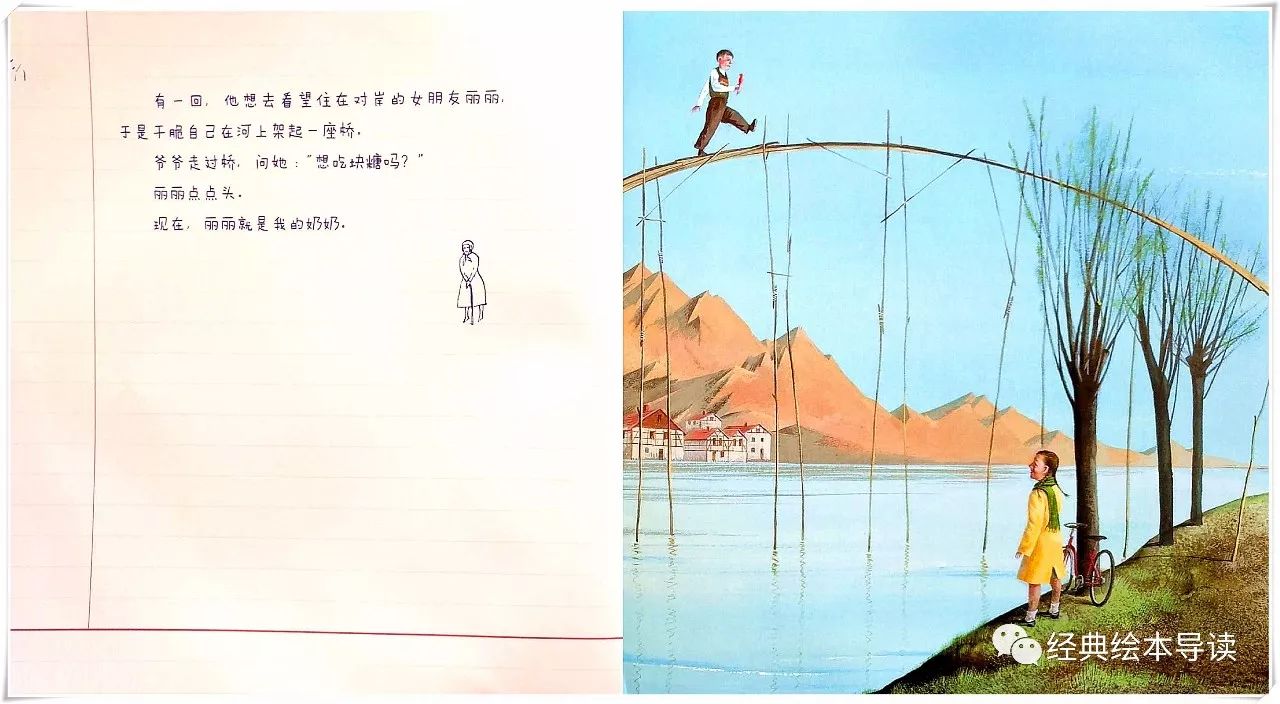 有一回，他想去看望住在对岸的女朋友丽丽，
于是干脆自己在河上架起一座桥。
爷爷走过桥，问她：“想吃块糖吗？”
丽丽点点头。
现在，丽丽就是我的奶奶。
经典绘本导读